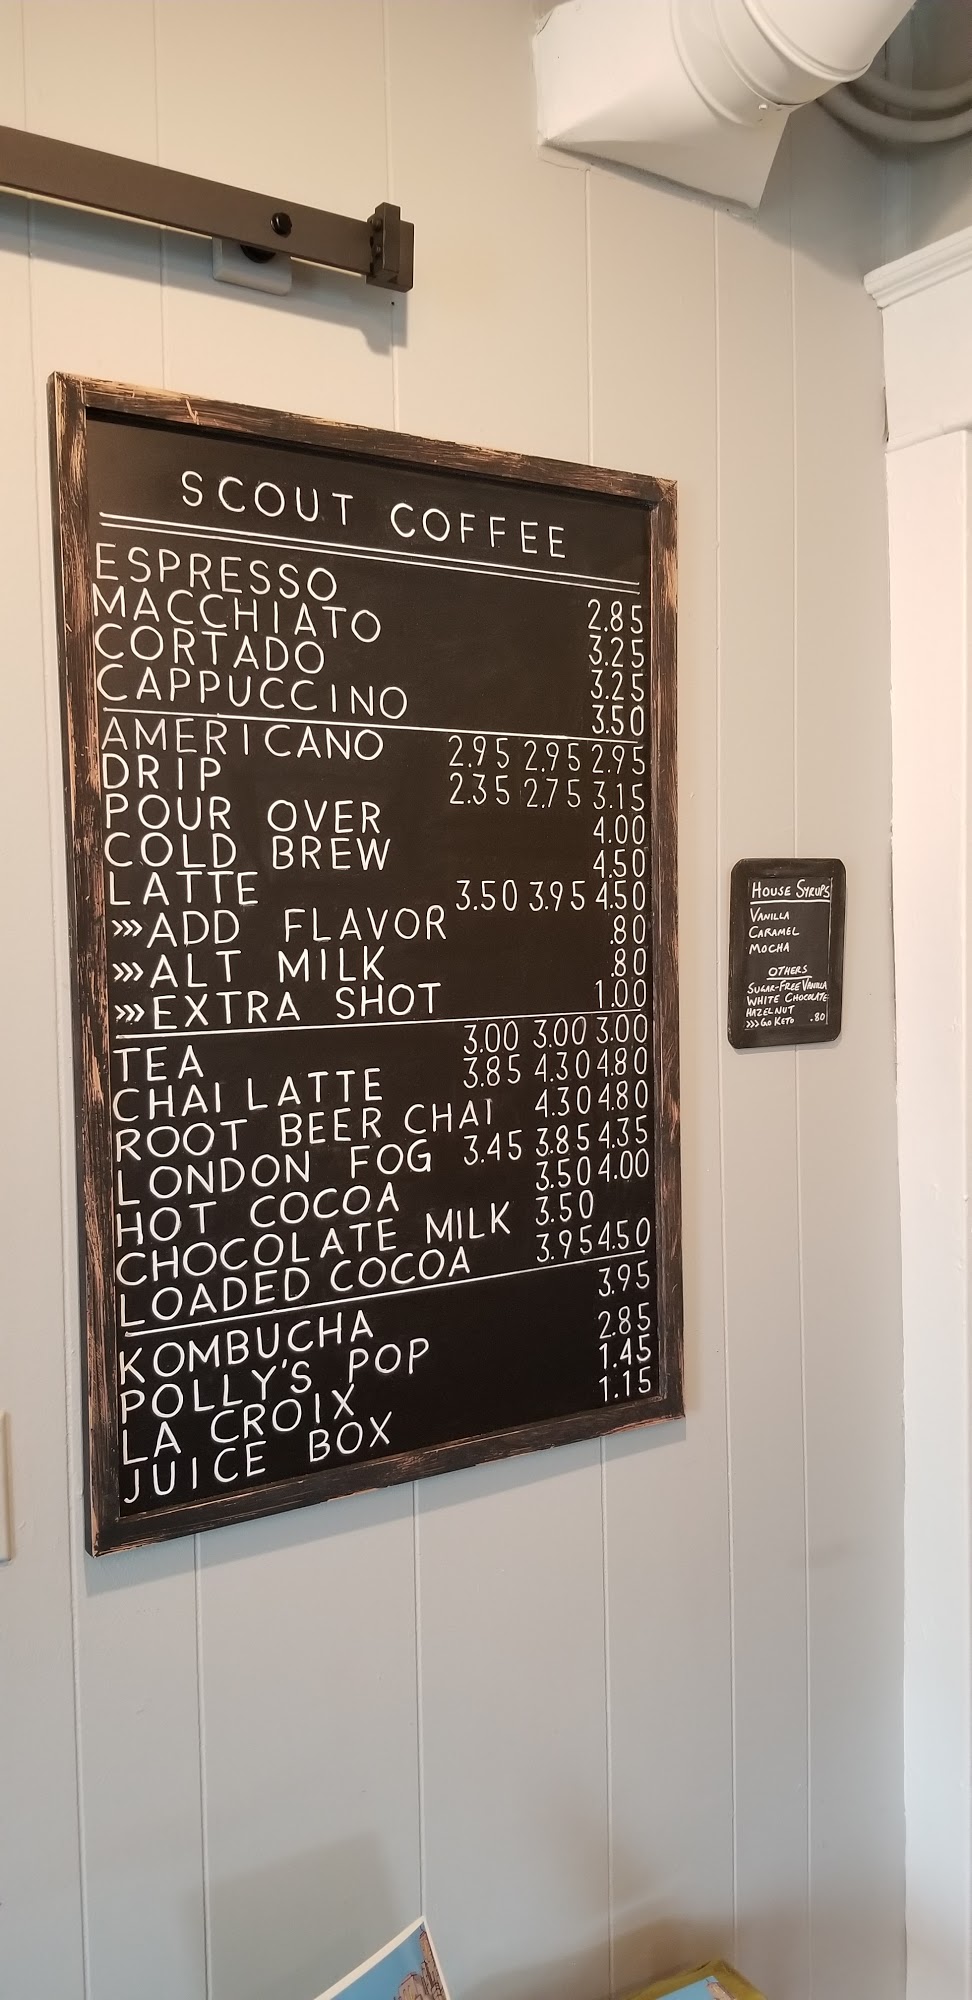 SCOUT COFFEE
ESPRESSO 2.85
MACCHIATO 3.25
CORTADO 3.25
CAPPUCCINO 3.50
AMERICANO 2.95 2.95 2.95
DRIP 2.35 2.75 3.15
POUR OVER 4.00
COLD BREW 4.50
LATTE 3.50 3.95 4.50
»»ADD FLAVOR .80
»»ALT MILK .80
»»EXTRA SHOT 1.00
TEA 3.00 3.00 3.00
CHAI LATTE 3.85 4.30 4.80
ROOT BEER CHAI 4.30 4.80
LONDON FOG 3.45 3.85 4.35
HOT COCOA 3.50 4.00
CHOCOLATE MILK 3.50
LOADED COCOA 3.95 4.50
KOMBUCHA 3.95
POLLY'S POP 2.85
LA CROIX 1.45
JUICE BOX 1.15
HOUSE SYRUPS
VANILLA
CARAMEL
MOCHA
OTHERS
SUGAR-FREE VANILLA
WHITE CHOCOLATE
HAZELNUT
>>>GO KETO .80